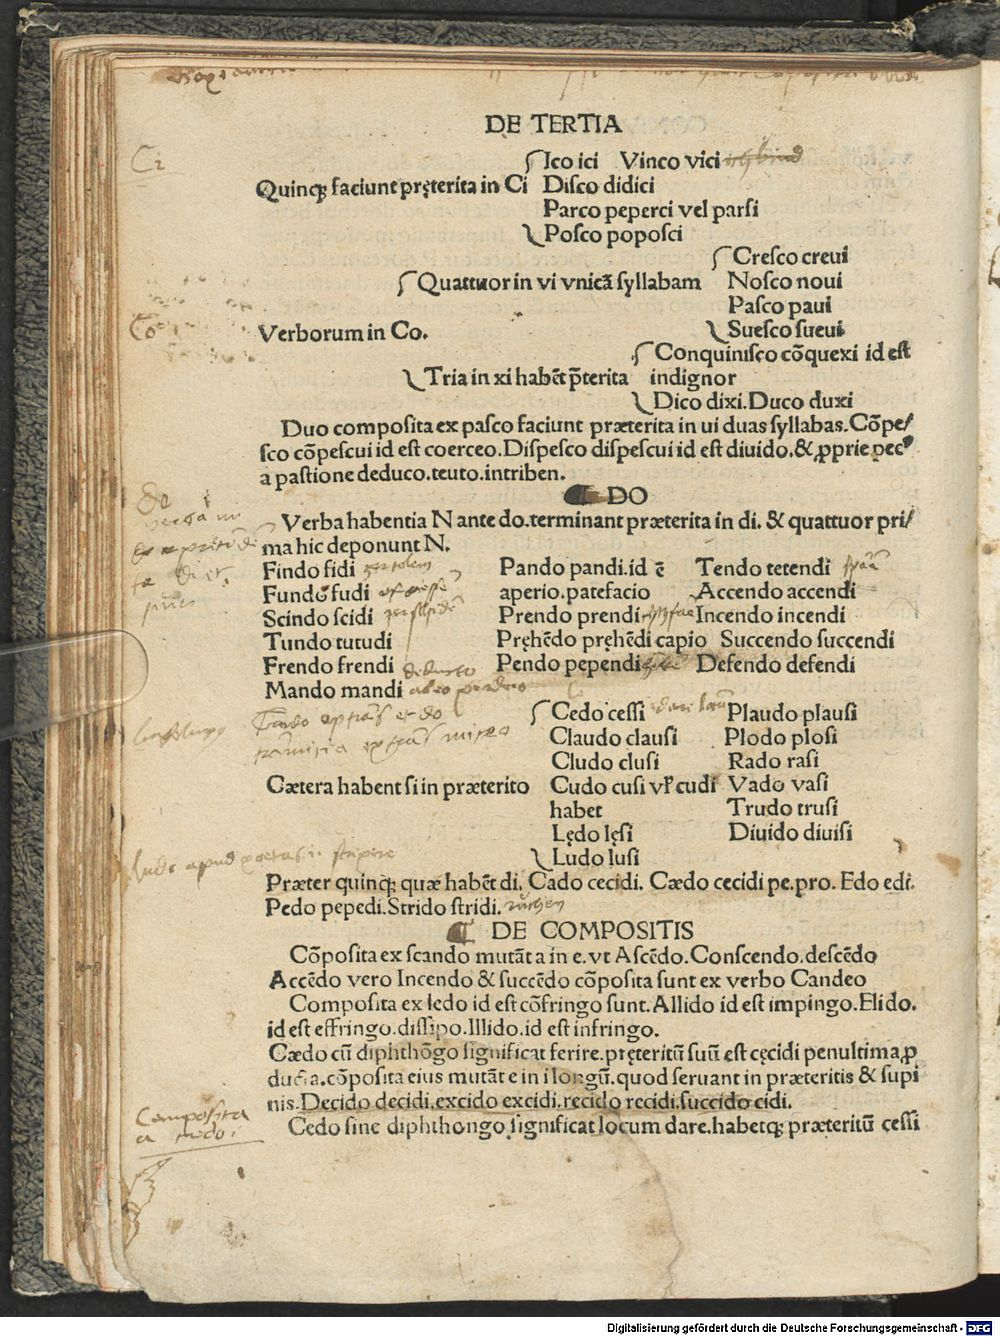 DE TERTIA
Ico ici Vinco vici
Quinq; faciunt pręterita in Ci Disco didici
Parco peperci vel parsi
Posco poposci
Cresco creui
Quattuor in vi vnicā syllabam Nosco noui
Pasco paui
Co
Verborum in Co. Suesco sueui
Conquinisco cōquexi id est
Tria in xi habēt p̄terita indignor
Dico dixi. Duco duxi
Duo composita ex pasco faciunt præterita in ui duas syllabas. Cōpe/
sco cōpescui id est coerceo. Dispesco dispescui id est diuido. & ꝓprie pec
a pastione deduco. teuto. intriben.
DO
Verba habentia N ante do. terminant præterita in di. & quattuor pri/
ma hic deponunt N.
Findo fidi Pando pandi. id ē Tendo tetendi
Fundo fudi aperio. patefacio Accendo accendi
Scindo scidi Prendo prendi Incendo incendi
Tundo tutudi Pręhēdo pręhēdi capio Succendo succendi
Frendo frendi Pendo pependi Defendo defendi
Mando mandi
Cedo cessi Plaudo plausi
Claudo clausi Plodo plosi
Cludo clusi Rado rasi
Cætera habent si in præterito Cudo cusi vl' cudi Vado vasi
habet Trudo trusi
Lędo lęsi Diuido diuisi
Ludo lusi
Præter quinq; quæ habēt di. Cado cecidi. Cædo cecidi pe. pro. Edo edi.
Pedo pepedi. Strido stridi.
DE COMPOSITIS
Cōposita ex scando mutāt a in e. vt Ascēdo. Conscendo. descēdo
Accēdo vero Incendo & succēdo cōposita sunt ex verbo Candeo
Composita ex ledo id est cōfringo sunt. Allido id est impingo. Elido.
id est effringo. dissipo. Illido. id est infringo.
Cædo cū diphthōgo significat ferire. pręteritū suū est cęcidi penultima ꝓ
ducta. cōposita eius mutāt e in i longū. quod seruant in præteritis & supi
nis. Decido decidi. excido excidi. recido recidi. succido cidi.
Composita
a cedo
Cedo sine diphthongo significat locum dare. habetq; præteritū cessi
Digitalisierung gefördert durch die Deutsche Forschungsgemeinschaft - DFG